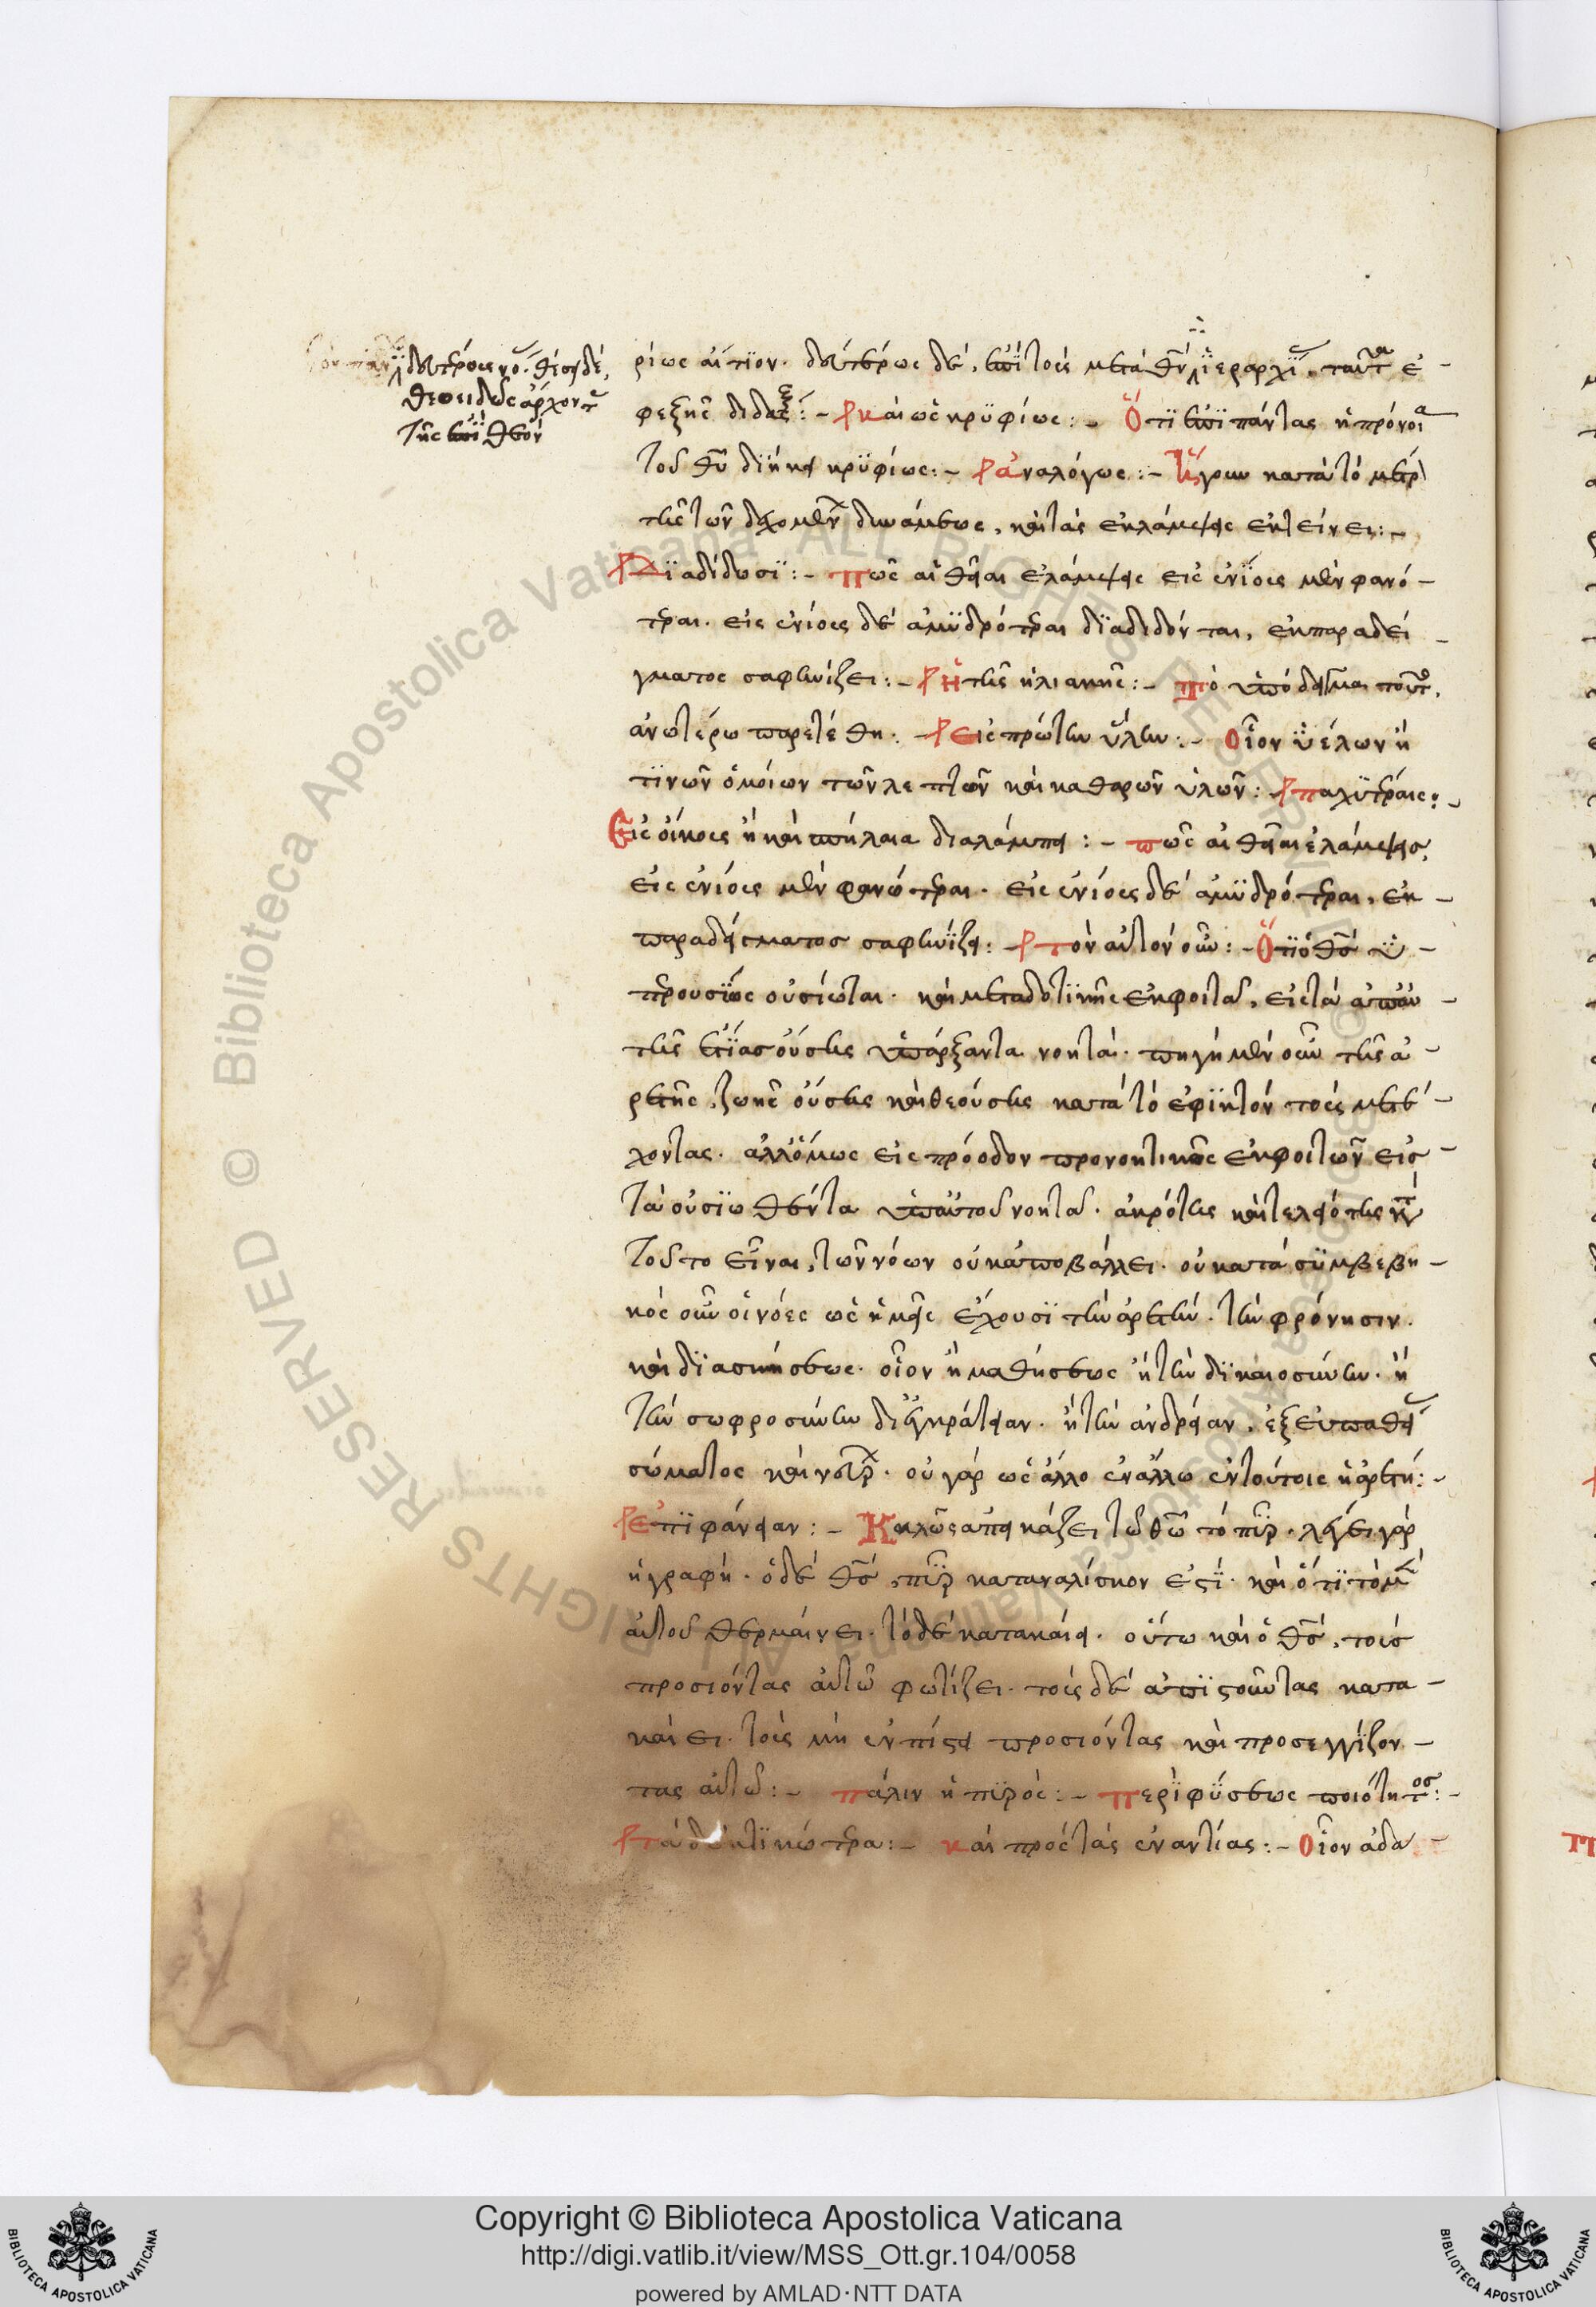 δευτέρους νο· θεοὺς δέ,
θεοειδῶς ἄρχοντ
τῆς ἐπὶ θεὸν
ρίως αἴτιον. δευτέρως δέ, ἐπὶ τοὺς μετὰ θν ἱεραρχι, ταῦτα ἐ-
φεξῆς διδάξει:- καὶ ὡς κρυφίως:- Ὅτι ἐπὶ πάντας ἡ πρόνοια
τοῦ θυ διήκει κρυφίως:- ἀναλόγως:- Ἤγουν κατὰ τὸ μετρ
τῆς τῶν δεχομένων δυνάμεως, καὶ τὰς ἐκλάμψεις ἐκτείνει:-
Διαδίδωσι:- πῶς αἱ θεῖαι ἐλάμψεις εἰς ἐνίους μὲν φανό-
τεραι. εἰς ἐνίους δὲ ἀμυδρότεραι διαδίδονται, ἐκ παραδεί-
γματος σαφηνίζει:- Ἡ τῆς ἡλιακῆς:- πὸ ὑπόδειγμα τοῦτο,
ἀνωτέρω παρετέθη:- Εἰς πρώτην ὕλην:- οἷον ὑέλων ἢ
τινῶν ὁμοίων τῶν λεπτῶν καὶ καθαρῶν ὑλῶν: παχυτέραις:-
Εἰς οἴκους ἢ καὶ σπήλαια διαλάμπει:- πῶς αἱ θεῖαι ἐλάμψεις,
εἰς ἐνίους μὲν φανώτεραι. εἰς ἐνίους δὲ ἀμυδρότεραι, ἐκ-
παραδείσματος σαφηνίζει: τὸν αὐτὸν οὖν:- Ὅτι ὁ θς ὑ-
περουσίως οὐσίωται. καὶ μεταδοτικῆς ἐκφοιτᾶ, εἰς τὰ
τῆς αἰτίας οὔσης ὑπάρξαντα νοητά. πηγὴ μὲν οὖν τῆς ἀ-
ρετῆς, ζωῆς οὔσης καὶ θεούσης κατὰ τὸ ἐφικτὸν τοὺς μετέ-
χοντας. ἀλλ' ὅμως εἰς πρόοδον προνοητικῶς ἐκφοιτῶν εἰς-
τὰ οὐσιωθέντα ὑπ' αὐτοῦ νοητά. ἀκρότης καὶ τελειότης κατὰ
τοῦτο εἶναι, τῶν νόων οὐκ ἀποβάλλει. οὐ κατὰ συμβεβη-
κὸς οὖν οἱ νόες ὡς ἡμεῖς ἔχουσι τὴν ἀρετήν. τὴν φρόνησιν.
καὶ δι' ἀσκήσεως. οἷον ἢ μαθήσεως ἢ τὴν δικαιοσύνην. ἢ
τὴν σωφροσύνην δι' ἐγκράτειαν. ἢ τὴν ἀνδρείαν, ἐξ εὐπαθεί
σώματος καὶ νεύρων. οὐ γὰρ ὡς ἄλλο ἐν ἄλλω ἐν τούτοις ἡ ἀρετή:-
Ἐπιφάνειαν:- Κακλῶς ἀπεικάζει τῶ θω τὸ πῦρ. λέγει γὰρ
ἡ γραφή. ὁ δὲ θς, πῦρ καταναλίσκον ἐστί. καὶ ὅτι τὸ μὲν
αὐτοῦ θερμαίνει. τὸ δὲ κατακαίει. οὕτω καὶ ὁ θς, τοὺς
προσιόντας αὐτῶ φωτίζει. τοὺς δὲ ἀπιστοῦντας κατα-
καίει. τοὺς μὴ ἐν πίστει προσιόντας καὶ προσεγγίζον-
τας αὐτῶ:- πάλιν ἡ πυρός:- περὶ φύσεως ποιότητος:-
τὰ δεκτικώτερα:- καὶ πρὸς τὰς ἐναντίας:- οἷον ἀδα-
Copyright © Biblioteca Apostolica Vaticana
http://digi.vatlib.it/view/MSS_Ott.gr.104/0058
powered by AMLAD·NTT DATA